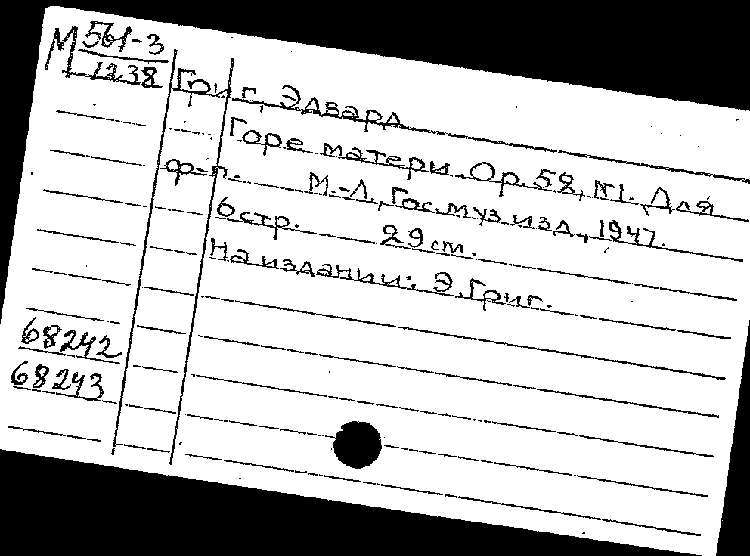 М 561-3
1238
Григ, Эдвард
Горе матери. Op. 52, №1. Для
ф-п. М.-Л., Гос. муз. изд., 1947.
6 стр. 29 см.
На издании: Э. Григ.
68242
68243